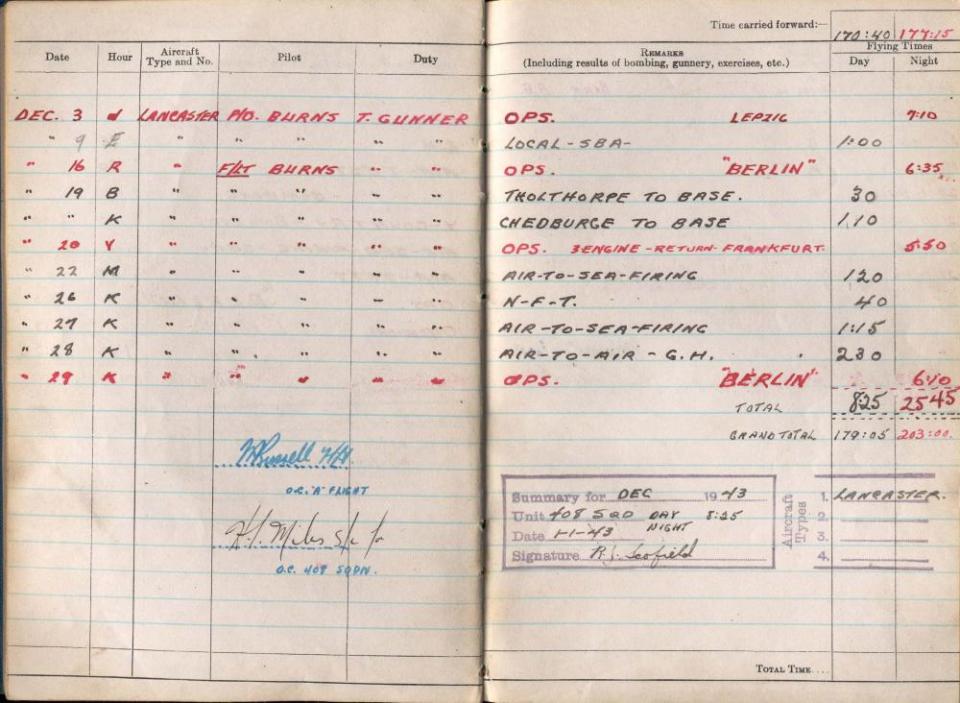 Time carried forward:— 170:40 177:15
Date Hour Aircraft Type and No. Pilot Duty REMARKS (Including results of bombing, gunnery, exercises, etc.) Flying Times Day Night
DEC. 3 d LANCASTER P/O. BURNS T. GUNNER OPS. LEPZIG 7:10
" 9 E " " " " " LOCAL-SBA- 1:00
" 16 R " F/LT BURNS " " OPS. "BERLIN" 6:35
" 19 B " " " " " THOLTHORPE TO BASE. 30
" " K " " " " " CHEDBURGE TO BASE 1,10
" 20 Y " " " " " OPS. 3 ENGINE-RETURN-FRANKFURT. 5:50
" 22 M " " " " " AIR-TO-SEA-FIRING 120
" 26 K " " " " " N-F-T. 40
" 27 K " " " " " AIR-TO-SEA-FIRING 1:15
" 28 K " " " " " AIR-TO-AIR-G.H. 230
" 29 K " " " " " OPS. "BERLIN" 6:10
TOTAL 8:25 25 45
GRAND TOTAL 179:05 203:00.
Russell F/Lt.
O.C. "A" FLIGHT
Miles
O.C. 408 SQDN.
Summary for DEC 1943
Unit 408 SQD DAY 8:25
NIGHT
Date 1-1-43
Signature R. J. Scofield
Aircraft Types
1. LANCASTER.
2.
3.
4.
TOTAL TIME....